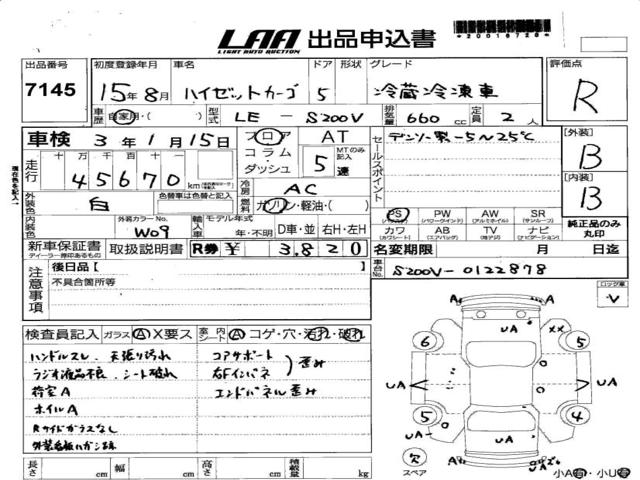 LAA 出品申込書
LIGHT AUTO AUCTION
*20016726*
出品番号 初度登録年月 車名 ドア 形状 グレード 評価点
7145 15年8月 ハイゼットカーゴ 5 冷蔵冷凍車 R
車歴 自家用・( ) 型式 LE-S200V 排気量 660cc 定員 2人
車検 3年1月15日
フロア コラム・ダッシュ AT 5速 MTのみ記入
セールスポイント デンソー製-5~25℃
[外装] B
走行 十万 万 千 百 十 45670km
冷房 AC
燃料 ガソリン・軽油・( )
[内装] B
外装色 白 色替車は色替と記入
外装カラーNo. W09
輸入車 モデル年式 年・不明 D車・並 右H・左H
PS (パワステ) PW (パワーウインド) AW (アルミホイル) SR (サンルーフ)
カワ (カワシート) AB (エアバッグ) TV (テレビ) ナビ (ナビゲーション)
純正品のみ丸印
新車保証書 ディーラー捺印あるもの 取扱説明書 R券 ¥ 3,820
名変期限 月 日迄
車台No. S200V-0122878
注意事項 後日品[ ]
不具合箇所等
ロック車
検査員記入 ガラス A X要ス 室内 シート A コゲ・穴・汚れ・破れ
ハンドルスレ、天張り汚れ コアサポート
ラジオ液晶不良、シート破れ 右Fインパネ 歪み
荷室A エンドパネル歪み
ホイルA
Rサイドガラスなし
外装看板ハガシ跡
A A
UA XX
6 5
UA A UA
UA
5 4
欠
スペア
長さ cm 幅 cm 高さ cm 積載量 kg
小A有・小U有